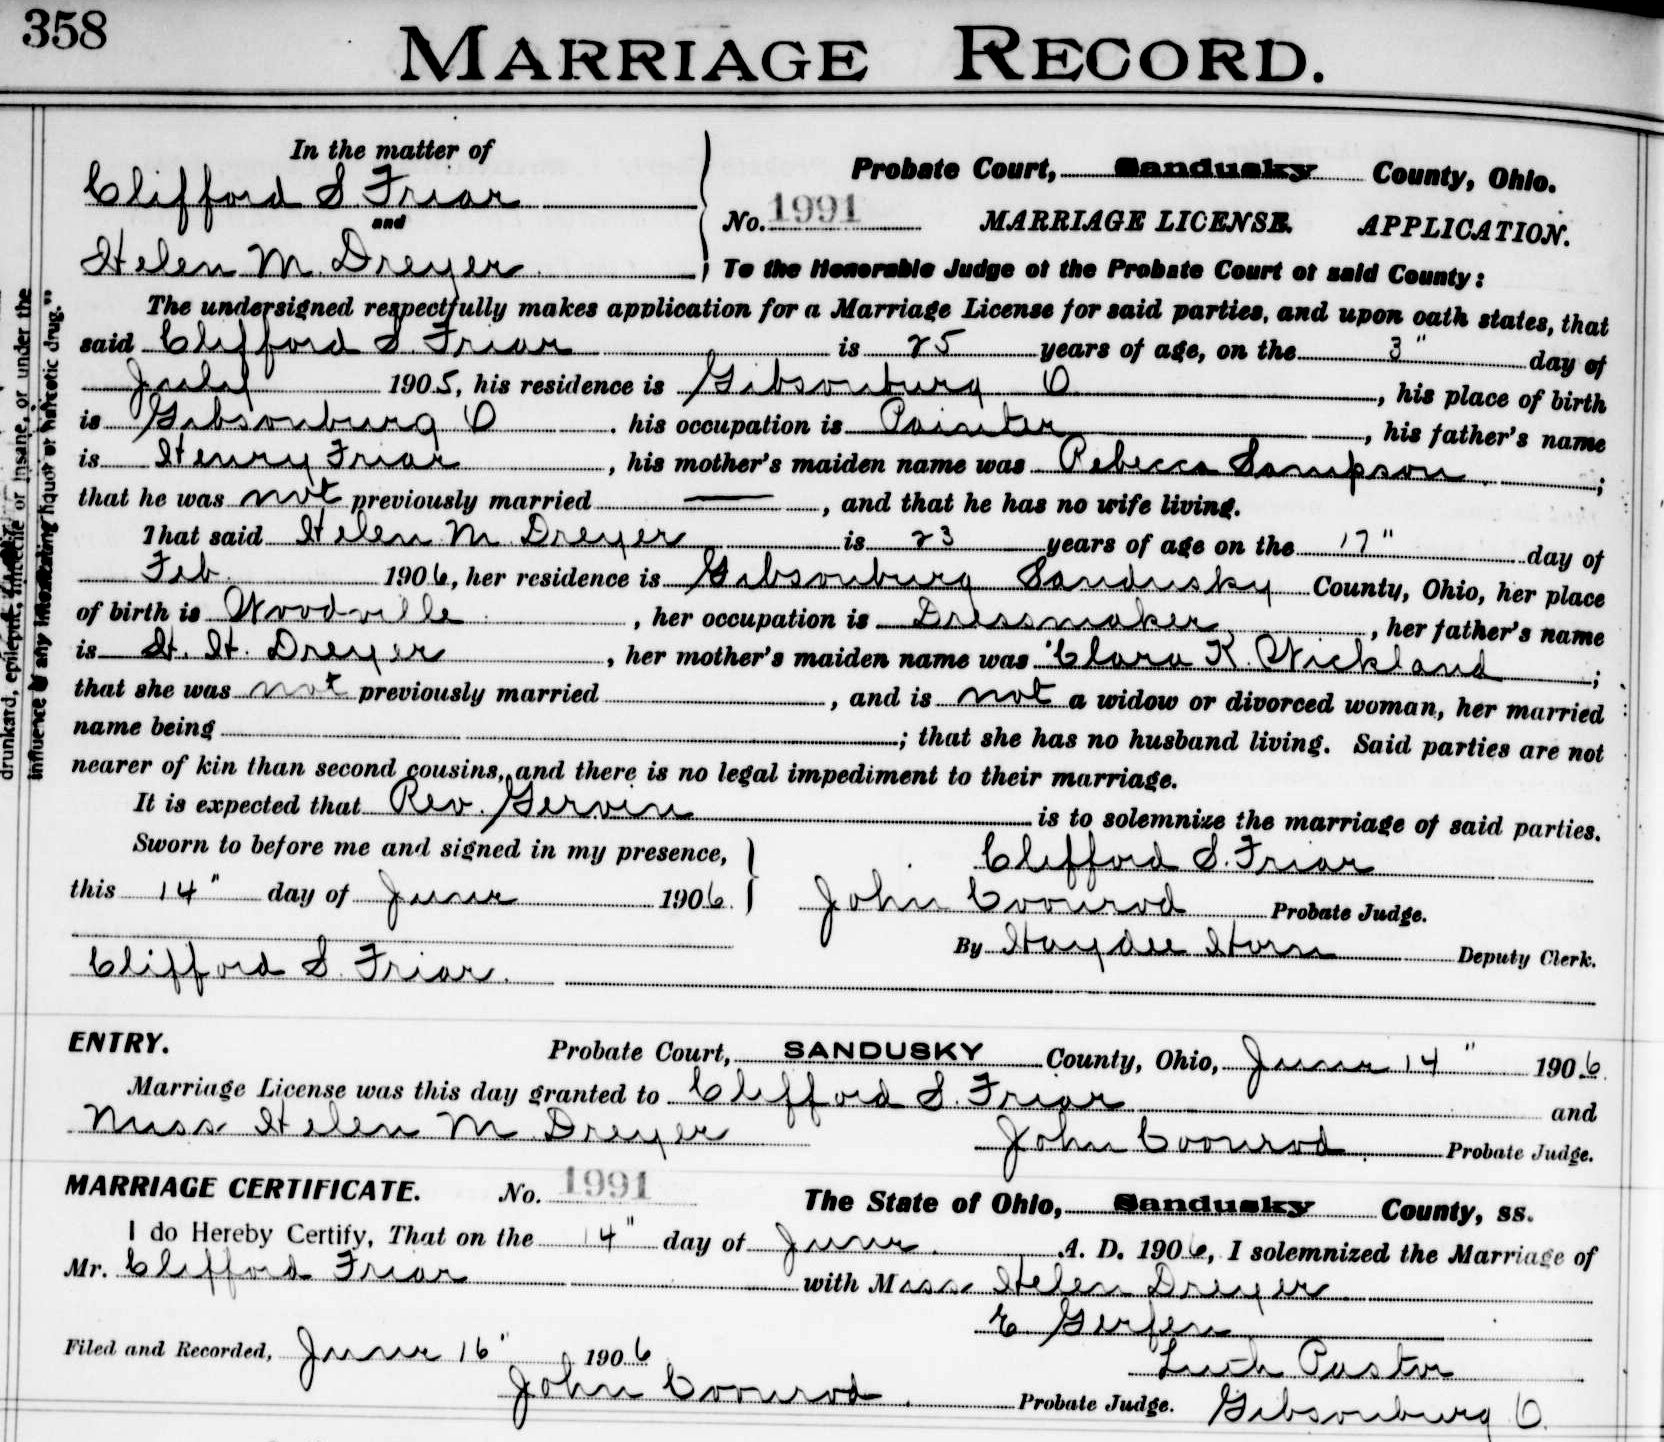 358
MARRIAGE RECORD.
In the matter of
Clifford S Friar
and
Helen M. Dreyer
Probate Court, Sandusky County, Ohio.
No. 1991 MARRIAGE LICENSE. APPLICATION.
To the Honorable Judge of the Probate Court of said County:
The undersigned respectfully makes application for a Marriage License for said parties, and upon oath states, that
said Clifford S. Friar is 25 years of age, on the 3" day of
July 1905, his residence is Gibsonburg O, his place of birth
is Gibsonburg O. his occupation is Painter, his father's name
is Henry Friar, his mother's maiden name was Rebecca Sampson;
that he was not previously married —, and that he has no wife living.
That said Helen M Dreyer is 23 years of age on the 17" day of
Feb. 1906, her residence is Gibsonburg Sandusky County, Ohio, her place
of birth is Woodville, her occupation is Dressmaker, her father's name
is H. H. Dreyer, her mother's maiden name was Clara K. Wickland;
that she was not previously married, and is not a widow or divorced woman, her married
name being ; that she has no husband living. Said parties are not
nearer of kin than second cousins, and there is no legal impediment to their marriage.
It is expected that Rev. Gervin is to solemnize the marriage of said parties.
Sworn to before me and signed in my presence,
this 14" day of June 1906.
Clifford S. Friar
John Coonrod Probate Judge.
By Haydee Horn Deputy Clerk.
Clifford S. Friar.
ENTRY. Probate Court, SANDUSKY County, Ohio, June 14" 1906.
Marriage License was this day granted to Clifford S. Friar and
Miss Helen M Dreyer John Coonrod. Probate Judge.
MARRIAGE CERTIFICATE. No. 1991 The State of Ohio, Sandusky County, ss.
I do Hereby Certify, That on the 14" day of June. A. D. 1906, I solemnized the Marriage of
Mr. Clifford Friar with Miss Helen Dreyer
E Gerfen
Filed and Recorded, June 16" 1906
Luth Pastor
John Coonrod. Probate Judge. Gibsonburg O.
drunkard, epileptic, imbecile or insane, or under the
influence of any intoxicating liquor or narcotic drug."